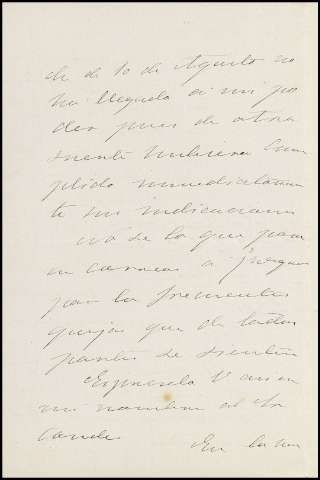 de 10 de Agosto no
ha llegado á mi po
der pues de otra
suerte hubiera cum
plido inmediatamen
te su indicacion
no se lo que pasa
en correos á juzgar
por la frecuentes
quejas que de todas
partes se sienten
Expreselo V asi en
mi nombre al Sr
Conde.
En la